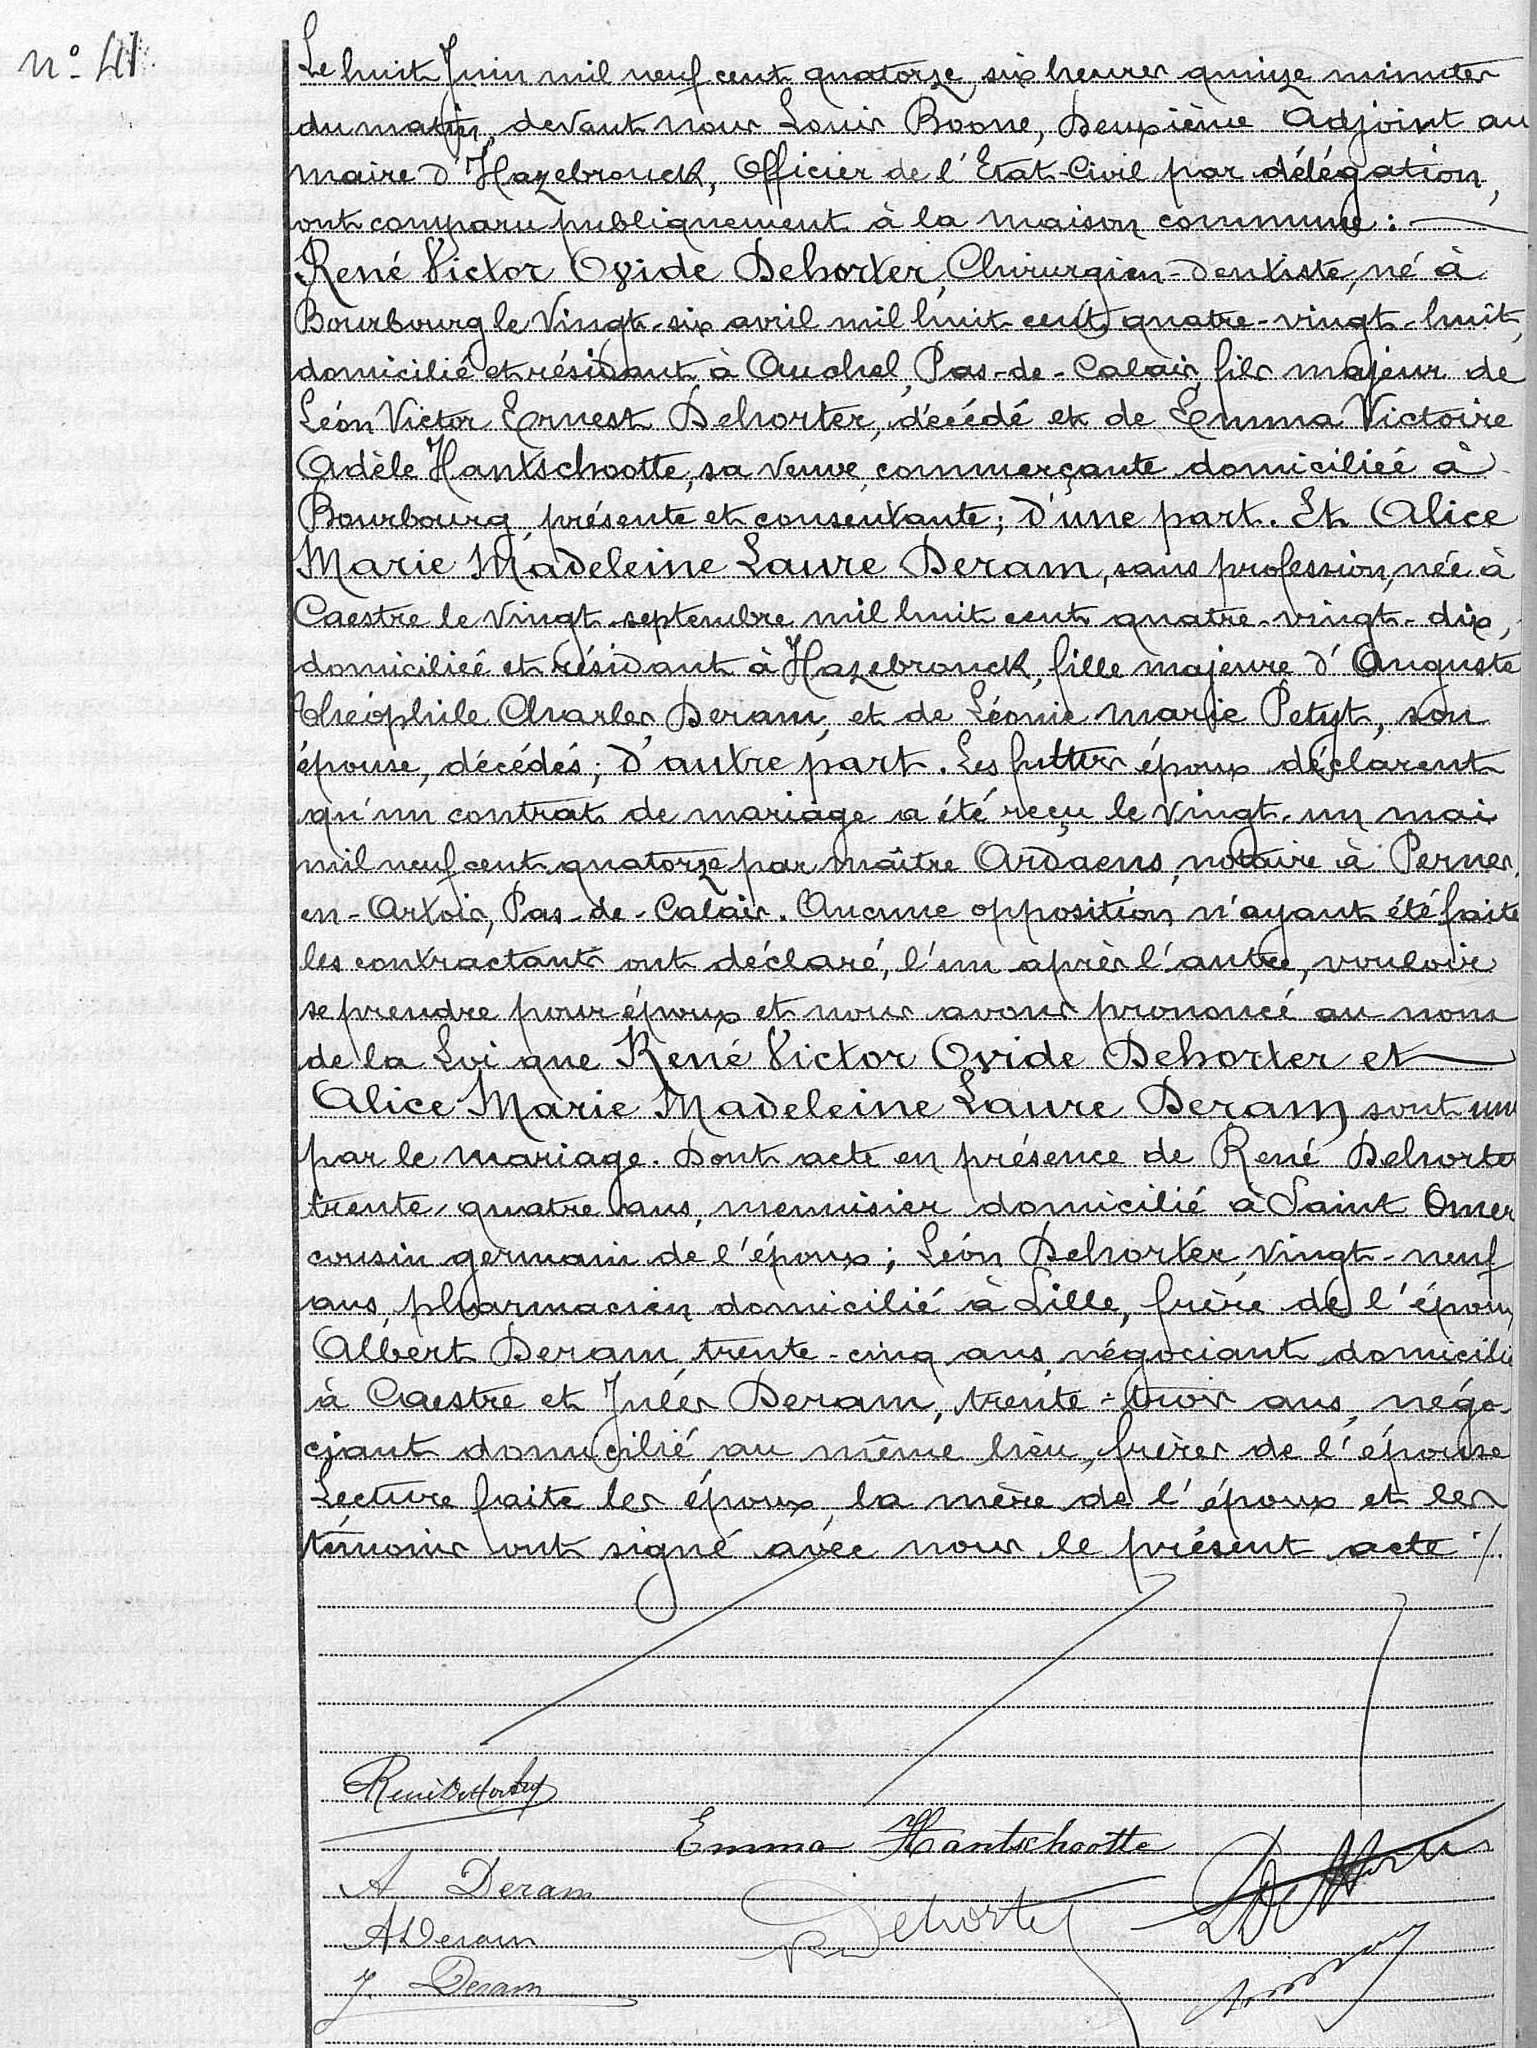 n° 41
Le huit Juin mil neuf cent quatorze six heures quinze minutes
du matin, devant nous Louis Boone, Deuxième Adjoint au
maire d'Hazebrouck, Officier de l'Etat-Civil par délégation,
ont comparu publiquement à la maison commune :
René Victor Ovide Dehorter, Chirurgien-dentiste, né à
Bourbourg le vingt-six avril mil huit cent quatre-vingt-huit,
domicilié et résidant à Auchel, Pas-de-Calais, fils majeur de
Léon Victor Ernest Dehorter, décédé et de Emma Victoire
Adèle Hantschootte, sa veuve, commerçante domiciliée à
Bourbourg, présente et consentante ; d'une part. Et Alice
Marie Madeleine Laure Deram, sans profession, née à
Caestre le vingt septembre mil huit cent quatre-vingt-dix,
domiciliée et résidant à Hazebrouck, fille majeure d'Auguste
Théophile Charles Deram, et de Léonie Marie Petyt, son
épouse, décédés ; d'autre part. Les futurs époux déclarent
qu'un contrat de mariage a été reçu le vingt-un mai
mil neuf cent quatorze par maître Ardaens, notaire à Pernes-
en-Artois, Pas-de-Calais. Aucune opposition n'ayant été faite
les contractants ont déclaré, l'un après l'autre, vouloir
se prendre pour époux et nous avons prononcé au nom
de la Loi que René Victor Ovide Dehorter et
Alice Marie Madeleine Laure Deram sont unis
par le mariage. Dont acte en présence de René Dehorter
trente-quatre ans, menuisier domicilié à Saint Omer
cousin germain de l'époux ; Léon Dehorter vingt-neuf
ans, pharmacien domicilié à Lille, frère de l'époux,
Albert Deram, trente-cinq ans, négociant domicilié
à Caestre et Jules Deram, trente-trois ans, négo-
ciant domicilié au même lieu, frères de l'épouse
Lecture faite les époux, la mère de l'époux et les
témoins ont signé avec nous le présent acte ./.
René Dehorter
Emma Hantschootte
A Deram
Dehorter
A Deram
J. Deram